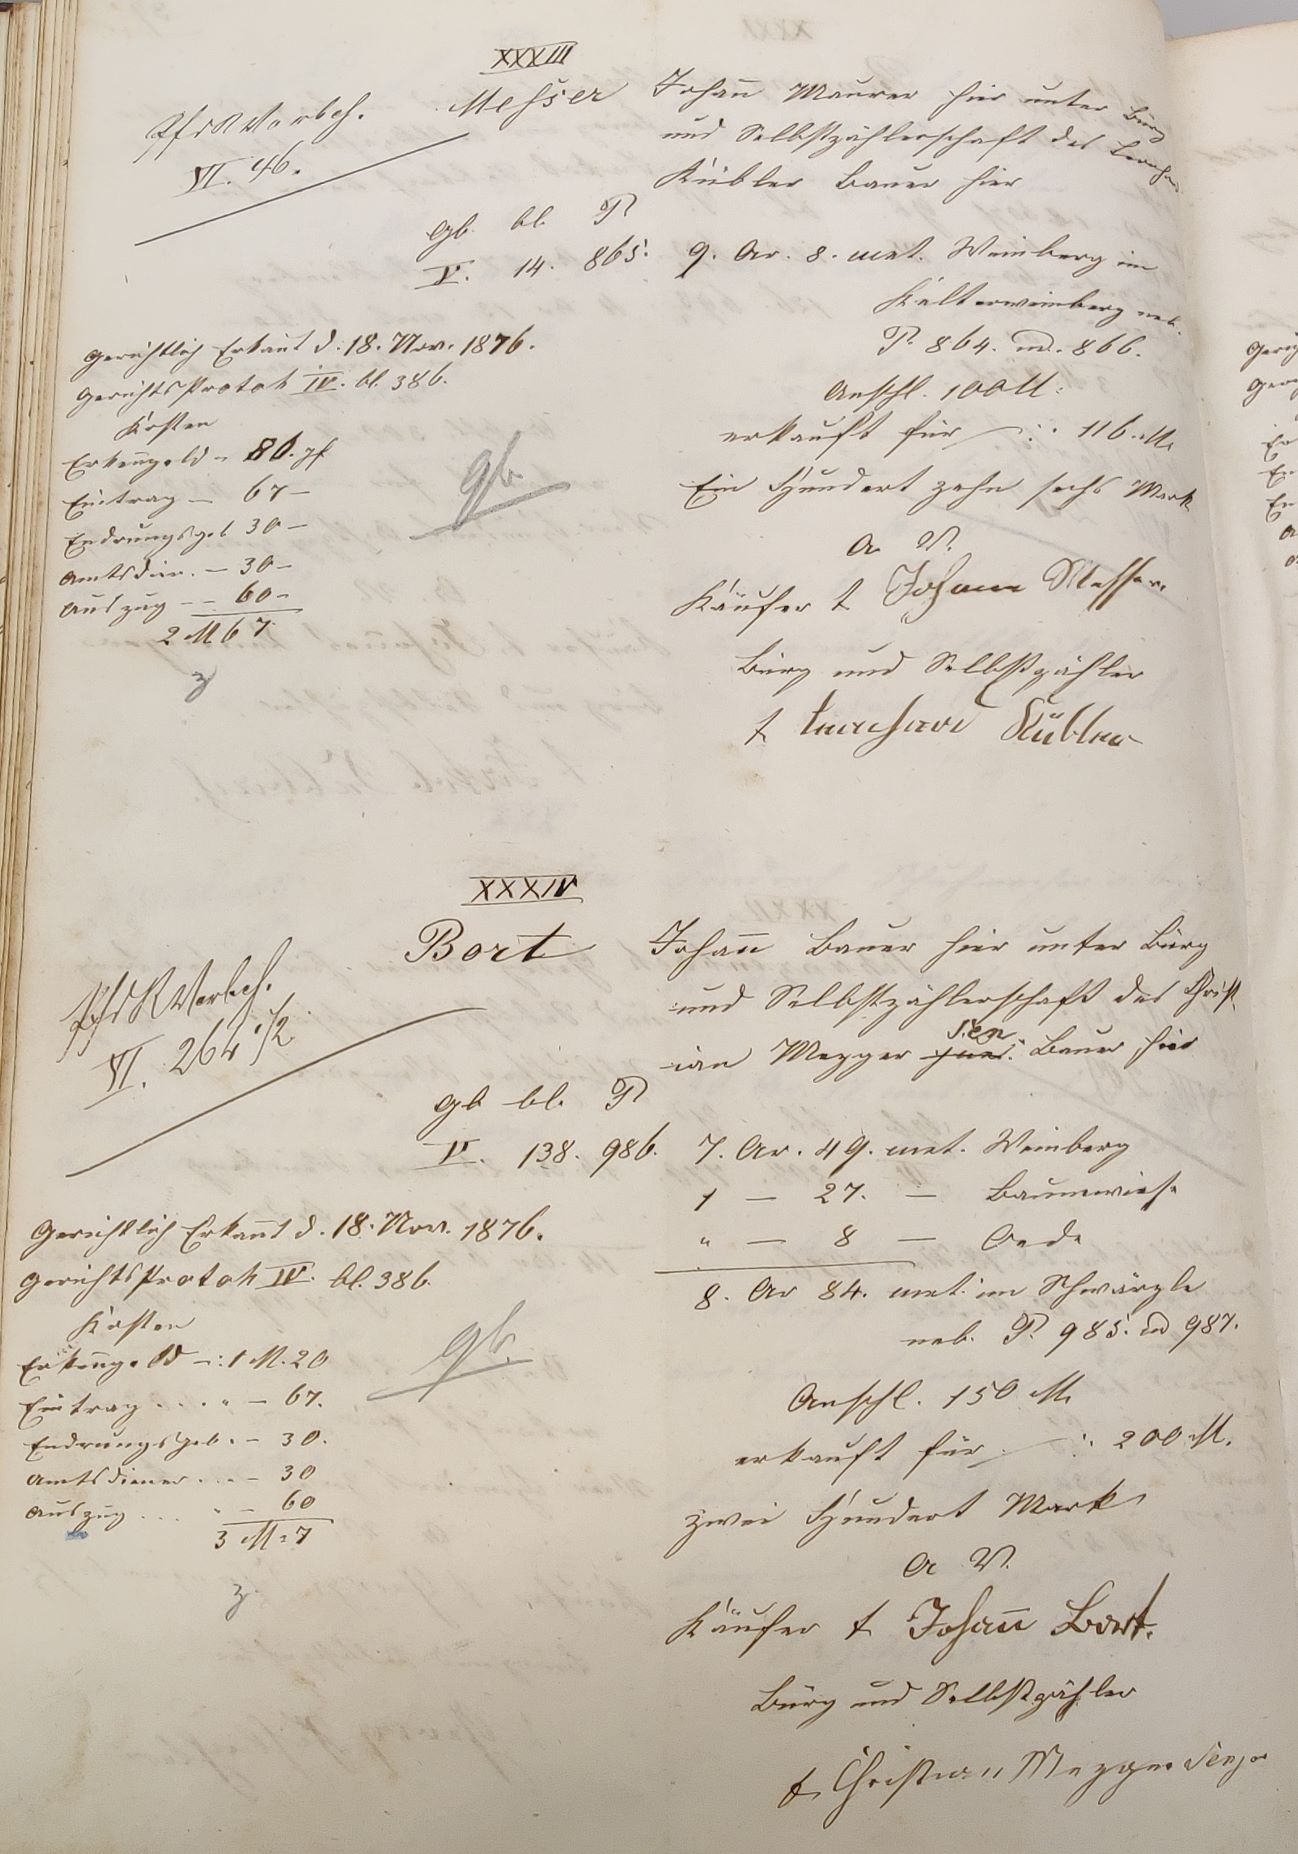 XXXIII
PfdRVorbeh.
VI. 46.
Messer
Johann Maurer hier unter Bürg
und Selbstzählerschaft des Leonhard
Kübler Bauer hier
Gb. bl. P
V. 14. 865.
9. Ar. 8. met. Weinberg im
Kelterweinberg neb.
P. 864. und. 866.
Anschl. 100 M.
erkauft für —:: 116. M.
Ein Hundert zehn sechs Mark
a. V.
Käufer t Johann Messer.
Bürg und Selbstzähler
t Leonhard Kübler
Gerichtlich Erkannt d. 18. Nov. 1876.
GerichtsProtok IV. bl. 386.
Kosten
Erkenngeld - 80. pf
Eintrag — 67 —
Endrungsgeb 30 —
Amtsdien. — 30 —
Auszug — — 60 —
2 M 67
gb.
XXXIV
Bort
PfdRVorbeh.
VI. 264 1/2
Johann Bauer hier unter Bürg
und Selbstzählerschaft des Christ
ian Mezger jun. Sen. Bauer hier
Gb bl. P
V. 138. 986.
7. Ar. 49. met. Weinberg
1 — 27. — Baumwiese
" — 8 — Oede
8. Ar 84. met. im Schwärzle
neb. P. 985. und 987.
Anschl. 150 M.
erkauft für —:: 200 M.
zwei Hundert Mark
a V.
Käufer t Johann Bort.
Bürg und Selbstzähler
t Christian Mezger Senjor
Gerichtlich Erkannt d. 18. Nov. 1876.
GerichtsProtok IV. bl. 386.
Kosten
Erkenngeld —: 1 M. 20
Eintrag . . . " — 67.
Endrungsgeb. — 30.
Amtsdiener . . . — 30
Auszug . . . " — 60
3 M: 7
gb.